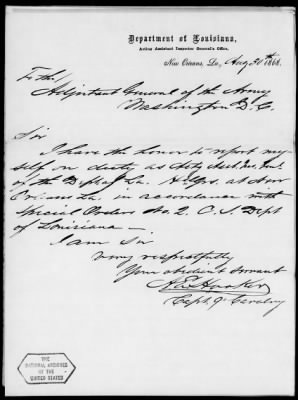 Department of Louisiana,
Acting Assistant Inspector General's Office,
New Orleans, La., Aug 30th 1868.
To the
Adjutant General of the Army
Washington D.C.
Sir
I have the honor to report my
self on duty as Actg Asst. Ins. Genl.
of the Dept of La. Hd Qrs. at New
Orleans La. in accordance with
Special Orders No. 2. C. S. Dept
of Louisiana —.
I am Sir
very respectfully
Your obedient servant
Capt. 9" Cavalry
THE
NATIONAL ARCHIVES
OF THE
UNITED STATES